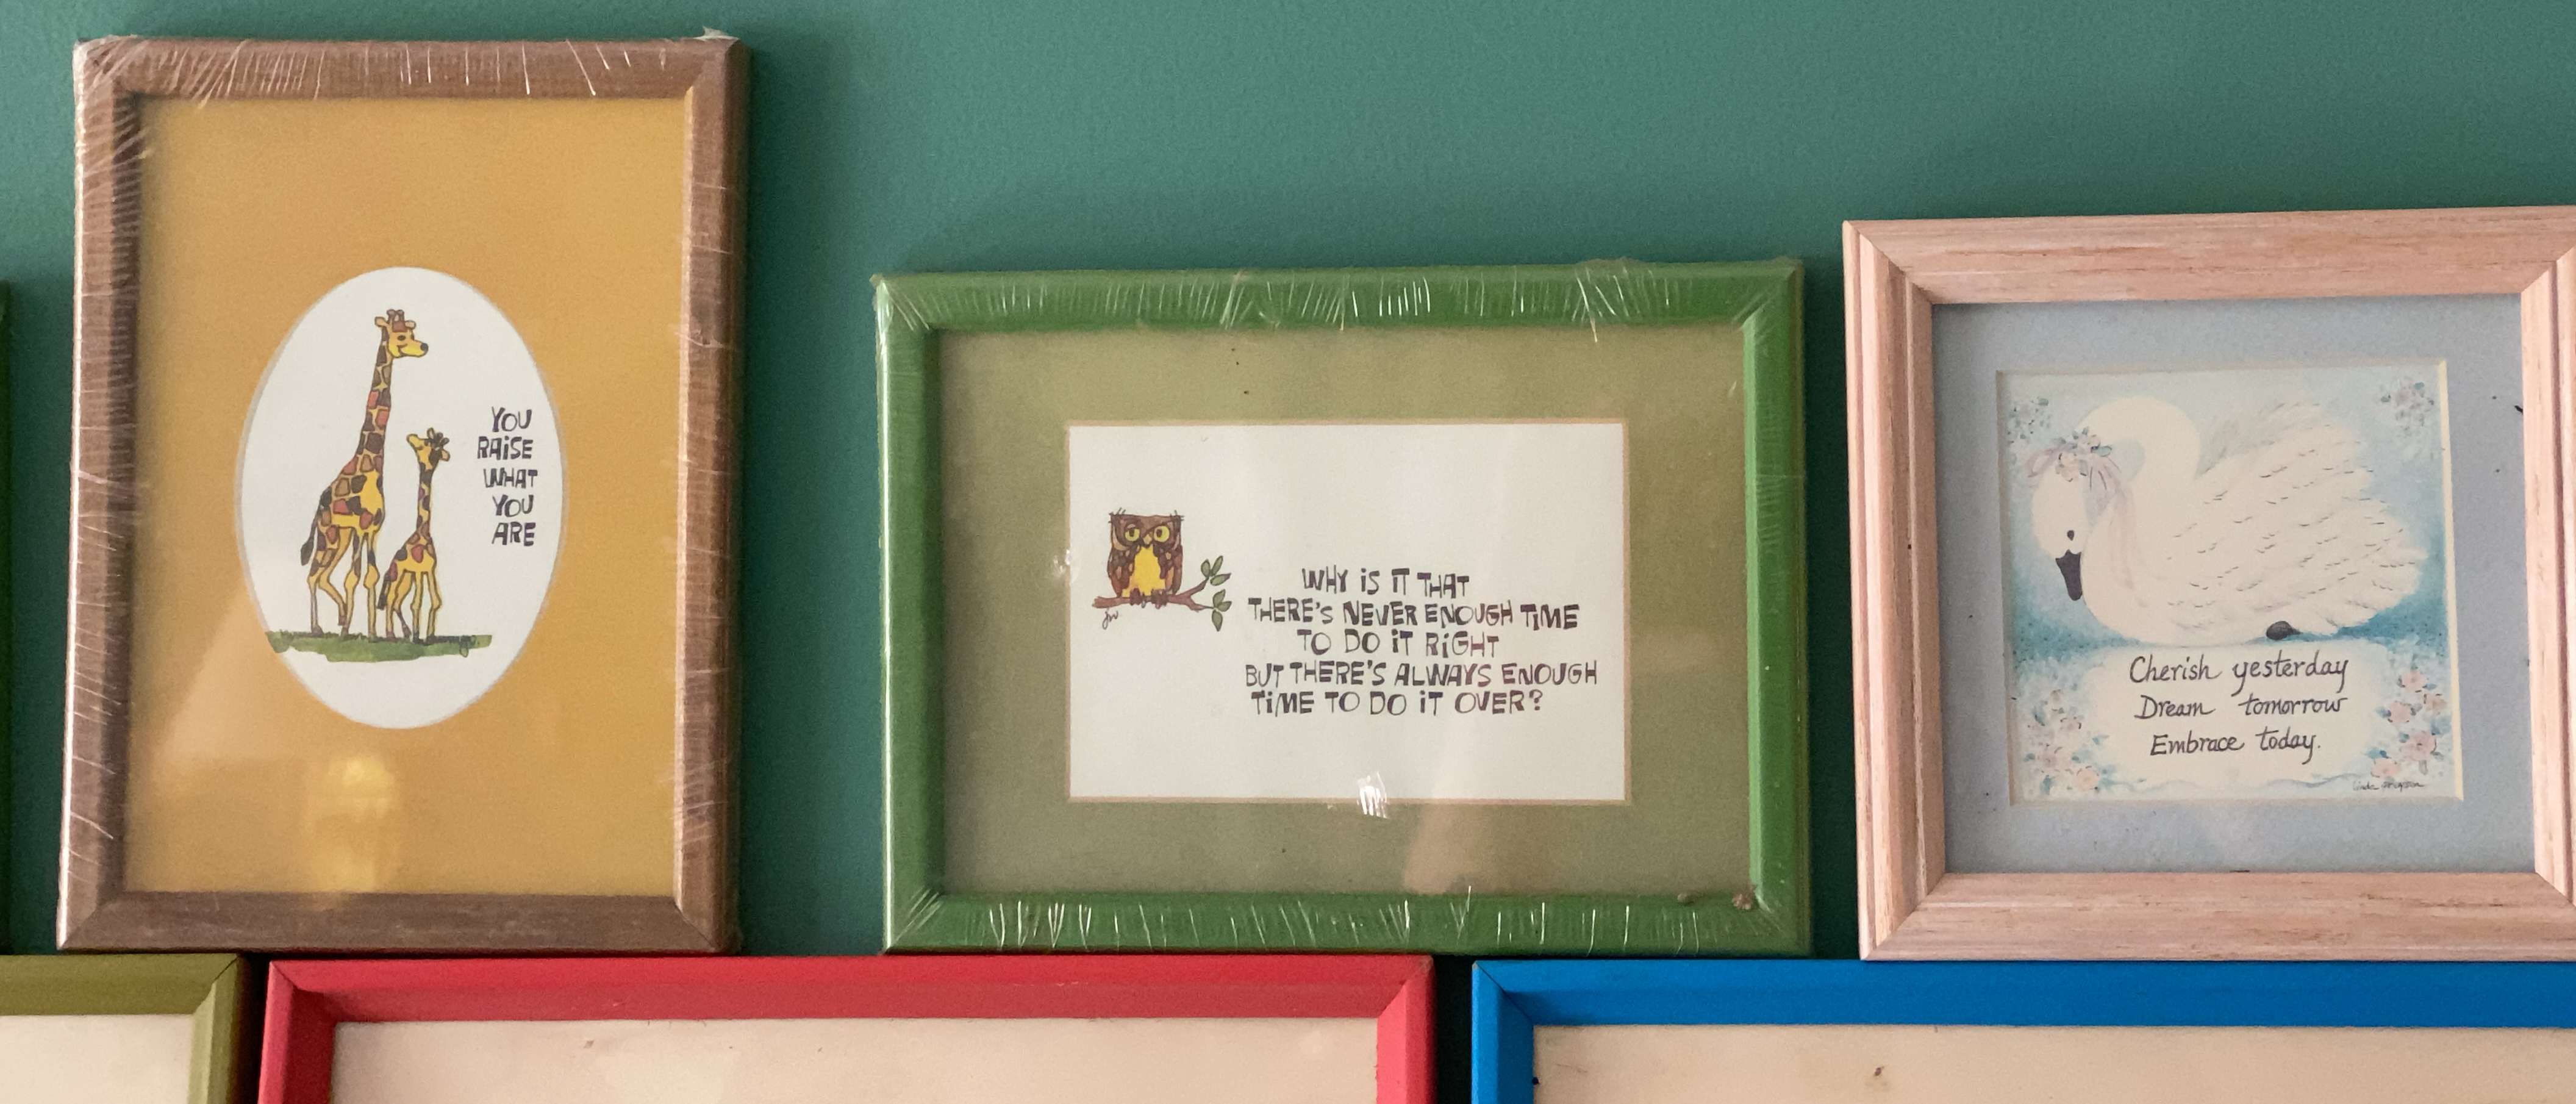 YOU
RAiSE
WHAT
YOU
ARE
WHY iS iT THAT
THERE'S NEVER ENOUGH TiME
TO DO iT RiGHT
BUT THERE'S ALWAYS ENOUGH
TiME TO DO iT OVER?
jw
Cherish yesterday
Dream tomorrow
Embrace today.